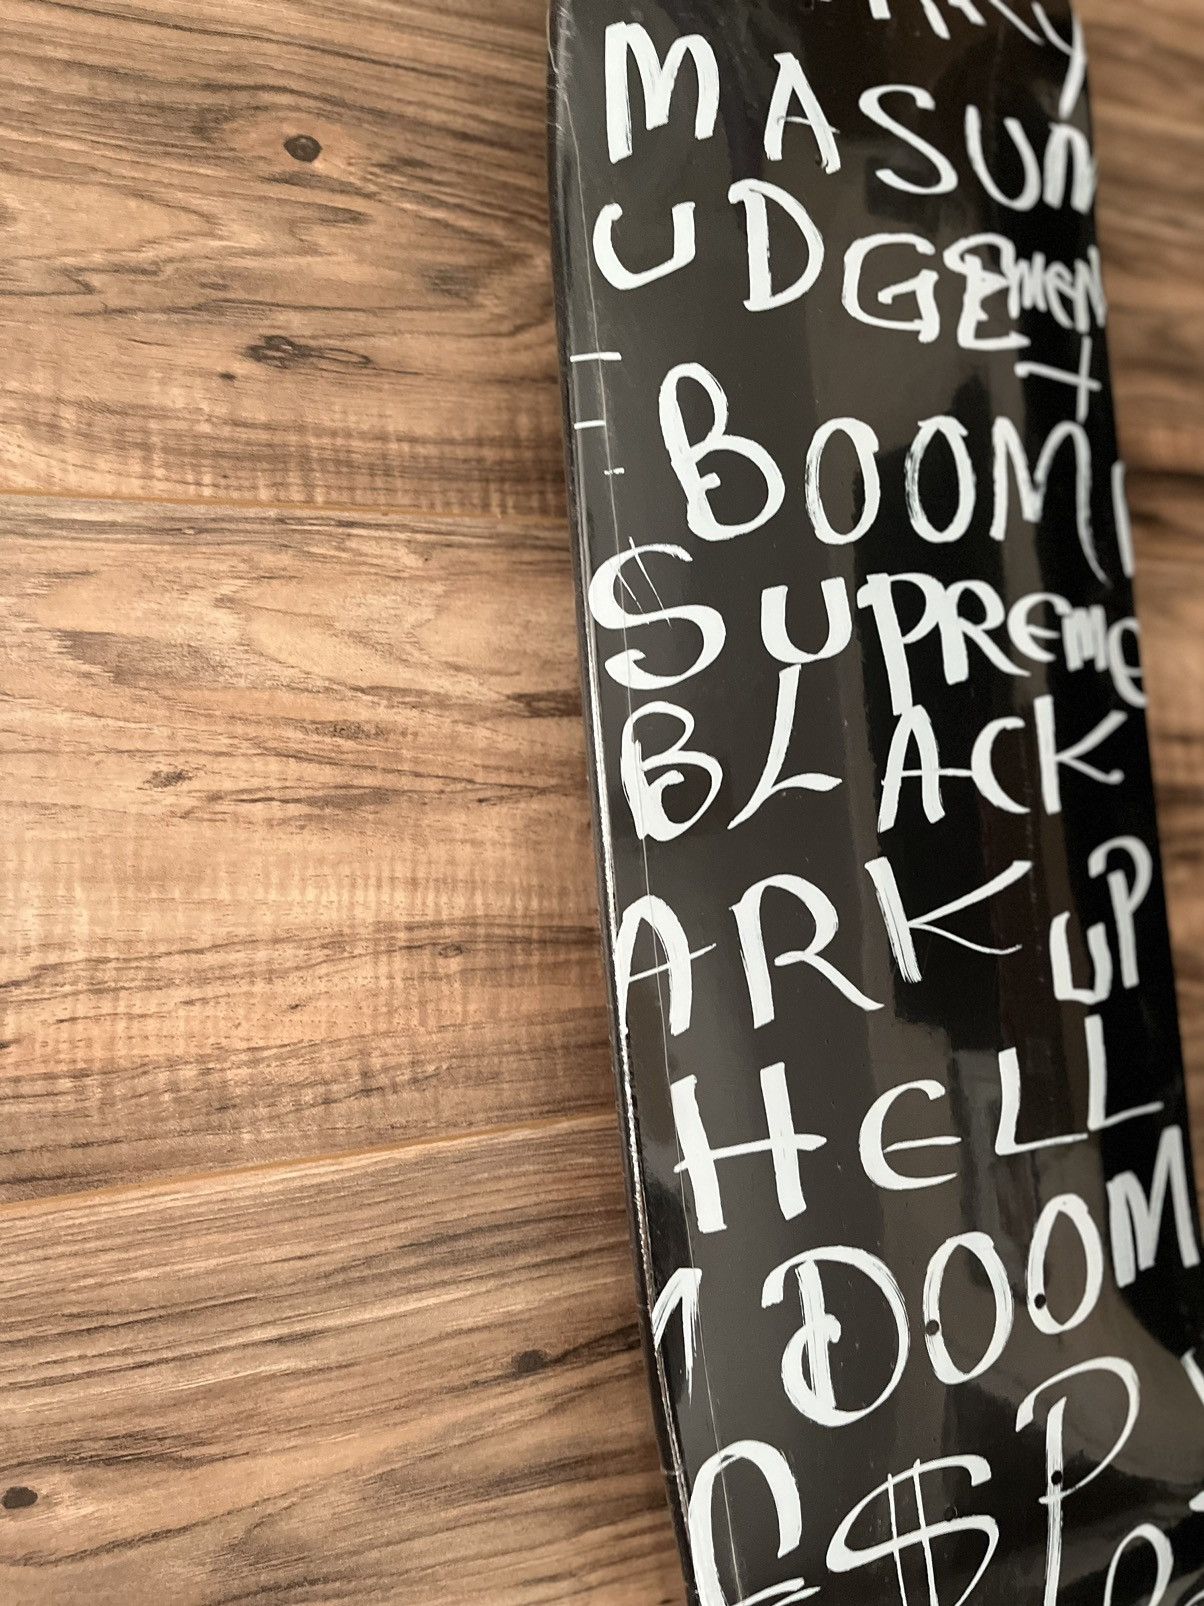 MASUM
UDGEMENT
BOOM
SUPREME
BLACK
ARK UP
HELL
DOOM